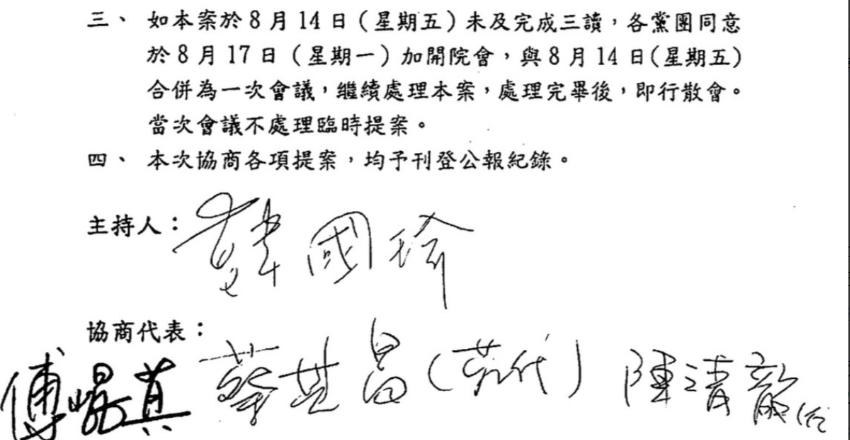 三、 如本案於8月14日（星期五）未及完成三讀，各黨團同意
於8月17日（星期一）加開院會，與8月14日（星期五）
合併為一次會議，繼續處理本案，處理完畢後，即行散會。
當次會議不處理臨時提案。
四、 本次協商各項提案，均予刊登公報紀錄。
主持人：韓國瑜
協商代表：
傅崐萁 蔡其昌（代） 陳清龍